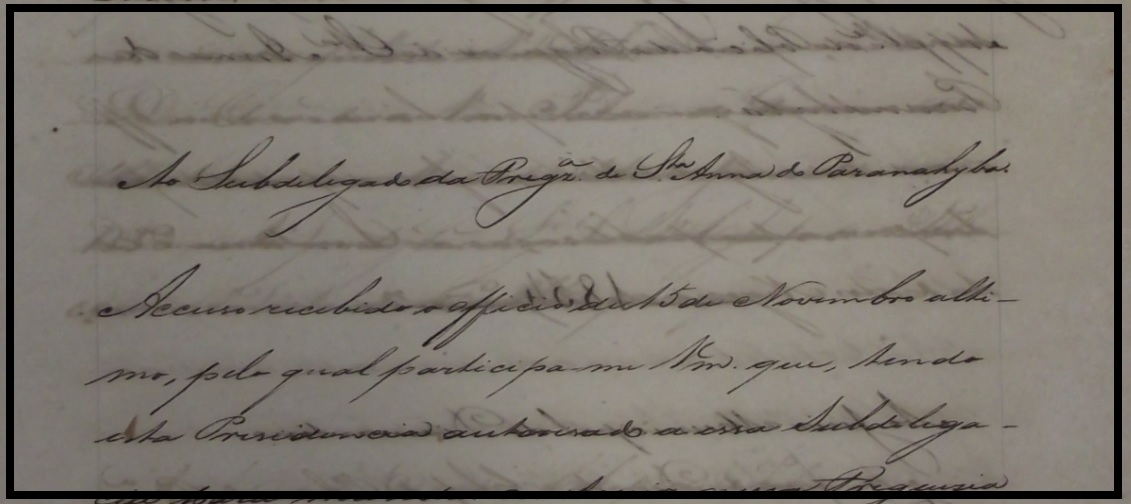 Ao Subdelegado da Fregz.ª de Sta Anna do Paranahyba.
Accuso recebido o officio de 15 de Novembro ulti-
mo, pelo qual participa-me Vm. que, tendo
esta Presidencia autorisado a essa Subdelega-
cia para mandar nessa Freguezia